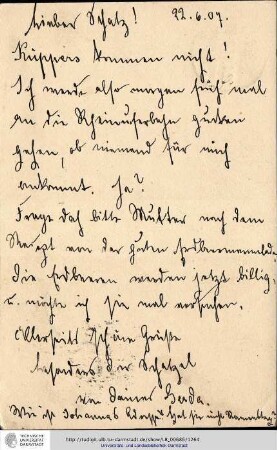 Lieber Schatz! 22.6.07.
Küppers kommen nicht!
Ich werde also morgen früh mal
an die Rheinuferbahn gucken
gehen, ob niemand für mich
ankommt. Ja?
Frage doch bitte Mutter nach dem
Rezept von der guten Erdbeermarmelade.
Die Erdbeeren werden jetzt billig,
u. möchte ich sie mal versuchen.
Allerseits schöne Grüße
besonders der Schatzel
von Deiner Gerda.
Wie ist Johannas
http://tudigit.ulb.tu-darmstadt.de/show/
Universitäts- und Landesbibliothek Darmstadt